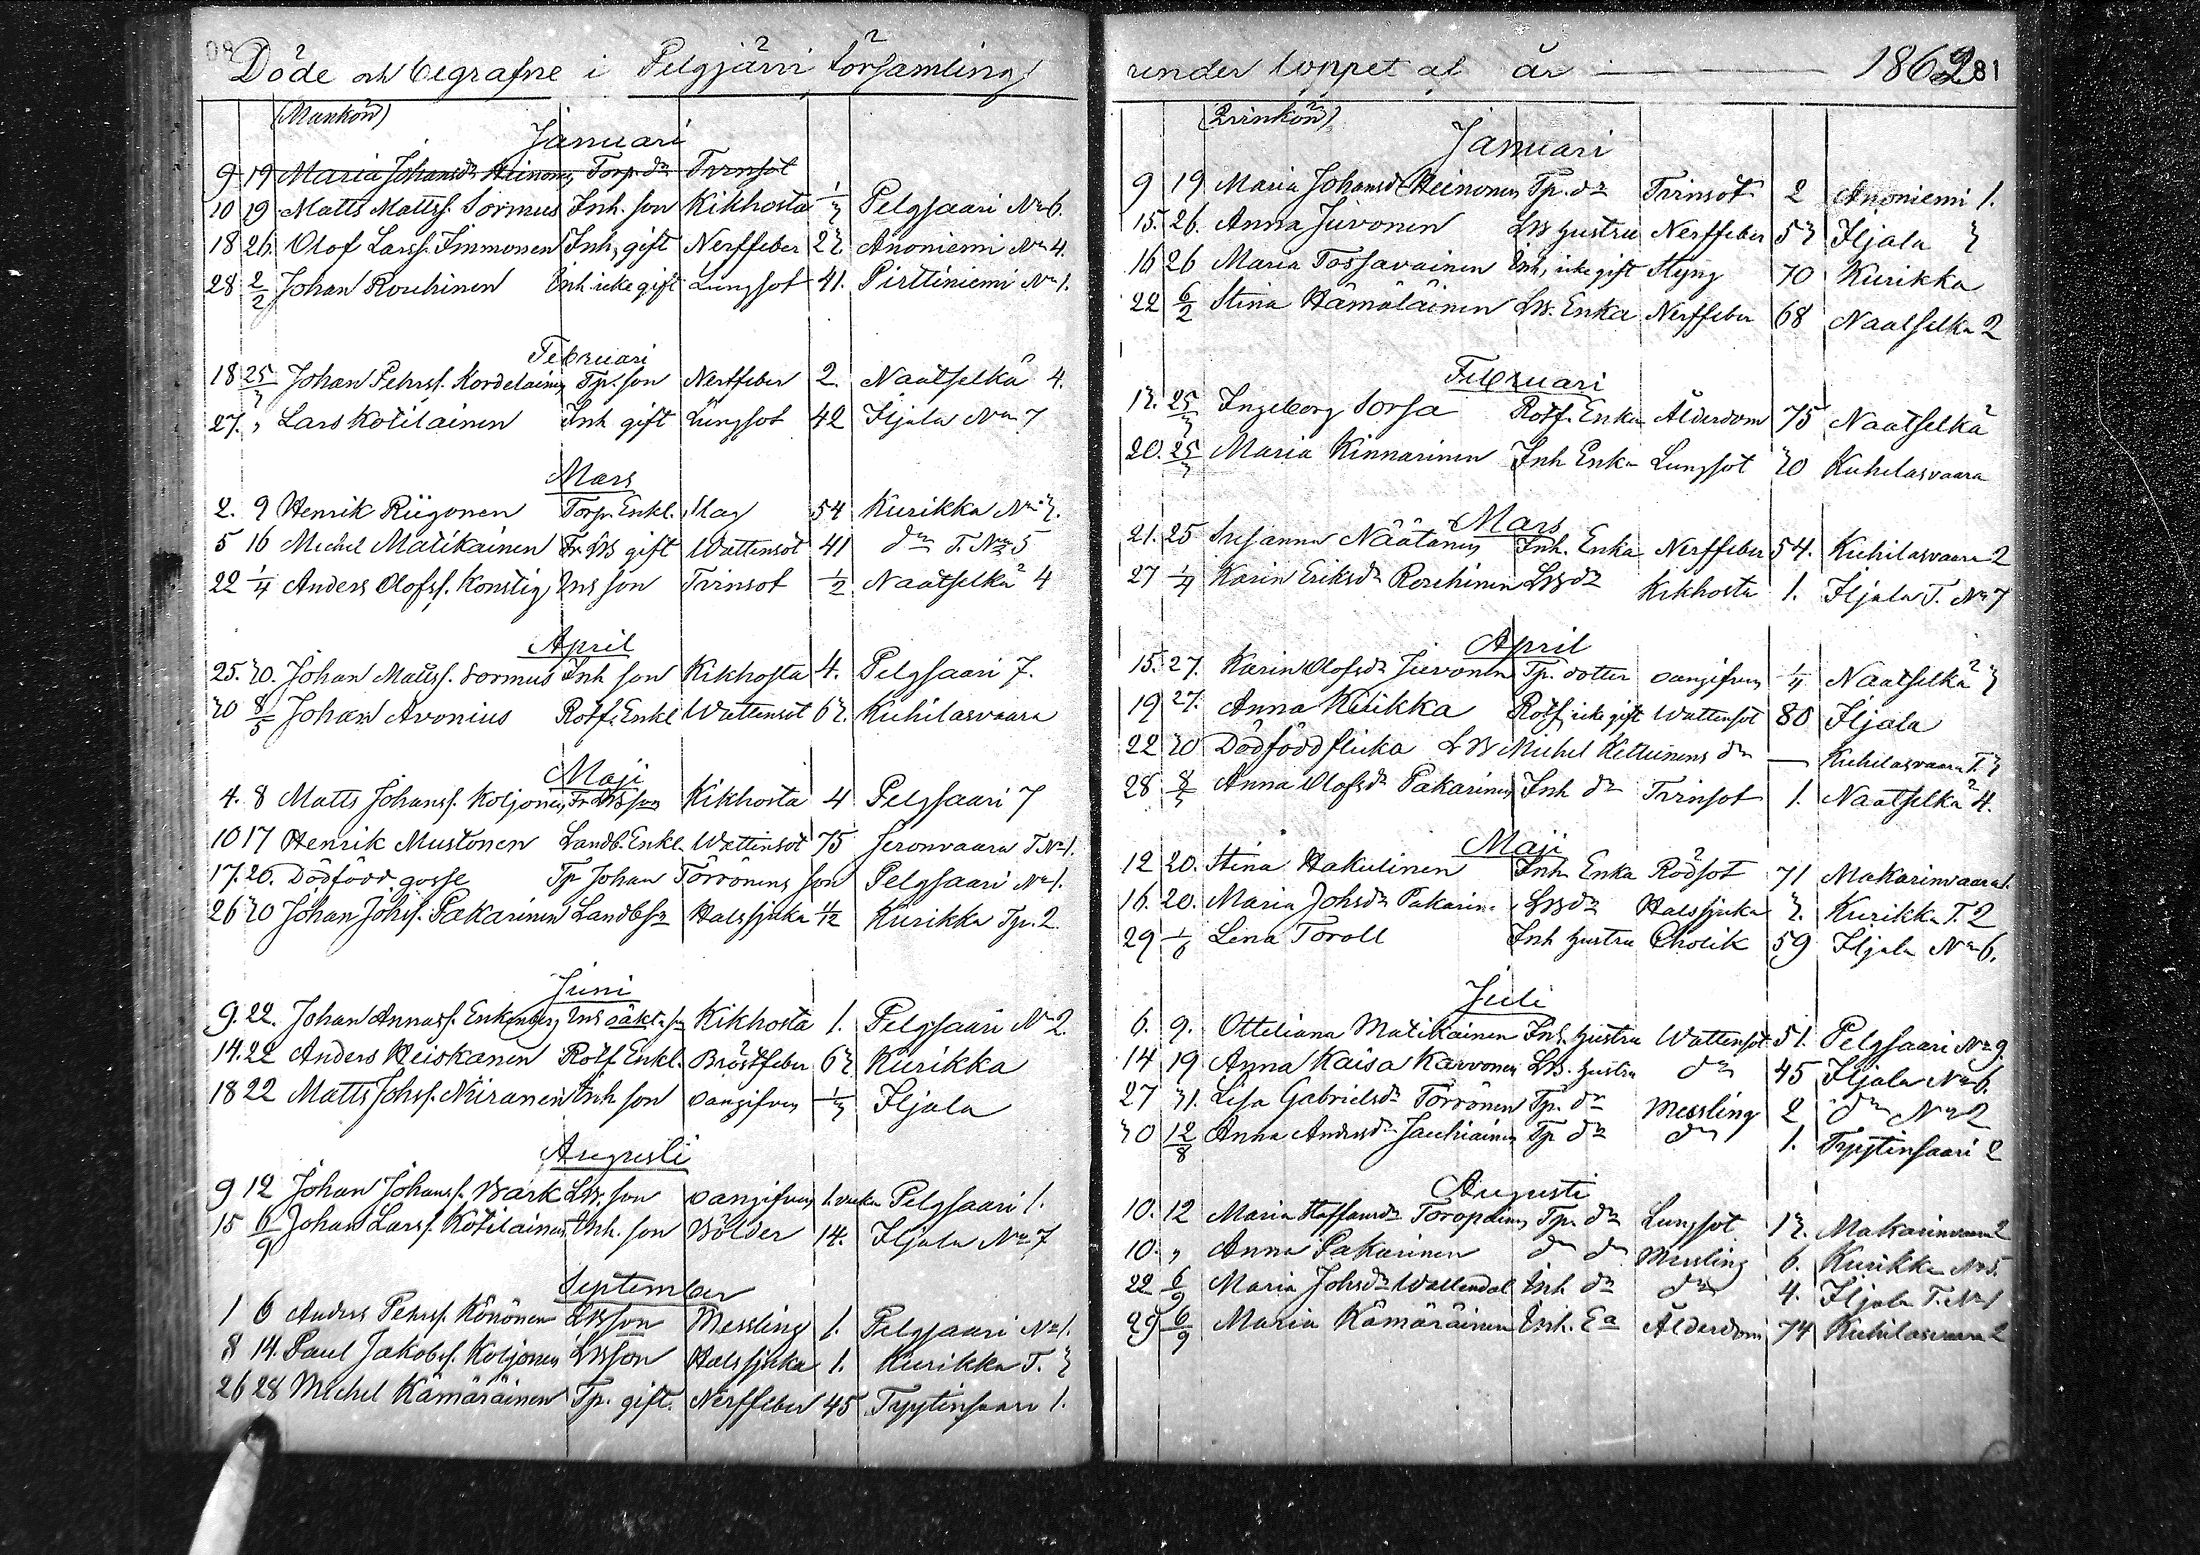 Döde och begrafne i Pelgjärvi församling
(Mankön)
Januari
9 19 Maria Johansdr Heinonen Torp. dr Tvinsot
10 29 Matts Mattss. Sormus Inh. son Kikhosta 1/3 Pelgsaari No 6.
18 26. Olof Larss. Immonen Inh, gift Nerffeber 23. Anoniemi No 4.
28 2/2 Johan Rouhinen Inh. icke gift Lungsot 41. Pirttiniemi No 1.
Februari
18 25/3 Johan Pehrss. Kordelainen Tp. son Nerffeber 2. Naatselkä 4.
27. " Lars Kotilainen Inh gift Lungsot 42 Iljala No 7
Mars
2. 9 Henrik Riigonen Torp. Enkl. Slag 54 Kurikka No 3.
5 16 Michel Matikainen Fr. LB gift Wattensot 41 do T. No 5
22 1/4 Anders Olofss. Konstig Inh son Tvinsot 1/2 Naatselkä 4
April
25. 30. Johan Mattss. Sormus Inh son Kikhosta 4. Pelgsaari 7.
30 8/5 Johan Avonius Rotf. Enkl Wattensot 63. Kuhilasvaara
Maji
4. 8 Matts Johanss. Koljonen Fr LBsson Kikhosta 4 Pelgsaari 7
10 17 Henrik Mustonen Landb. Enkl. Wattensot 75 Jeronvaara T. No 1.
17. 26. Dödfödd gosse Tp Johan Törrönens son Pelgsaari No 1.
26 30 Johan Johss. Pakarinen Landbsn Halssjuka 1/2 Kurikka Tp. 2.
Juni
9. 22. Johan Annass. Enkenberg Inh oäkta sn Kikhosta 1. Pelgsaari No 2.
14. 22 Anders Heiskanen Rotf. Enkl. Bröstfeber 63. Kurikka
18 22 Matts Johss. Niiranen Inh son oangifven 1/3 Iljala
Augusti
9 12 Johan Johanss. Bark LB. son oangifven 1. vecka Pelgsaari 1.
15 6/9 Johan Larss. Kotilainen Inh. son Bölder 14. Iljala No 7
September
1 6 Anders Pehrss. Könönen LBsson Messling 1. Pelgsaari No 1.
8 14. Paul Jakobss. Koljonen LBsson Halssjuka 1. Kurikka T. 3
26 28 Michel Kämäräinen Tp. gift. Nerffeber 45 Tyytinsaari 1.
under loppet af år 1862 81
(Qvinkön)
Januari
9 19 Maria Johansdr Heinonen Tp. dr Tvinsot 2 Anoniemi 1.
15. 26. Anna Juvonen LB hustru Nerffeber 53 Iljala 3
16 26 Maria Tossavainen Inh, icke gift Styng 70 Kurikka
22 6/2 Stina Hämäläinen LB. Enka Nerffeber 68 Naatselkä 2
Februari
13. 25/3 Ingeborg Sorsa Rotf. Enka Ålderdom 75 Naatselkä
20. 25/3 Maria Kinnarinen Inh Enka Lungsot 30 Kuhilasvaara
Mars
21. 25 Susanna Näätänen Inh. Enka Nerffeber 54. Kuhilasvaara 2
27 1/4 Karin Eriksdr Rouhinen LBdr Kikhosta 1. Iljala T. No 7
April
15. 27. Karin Olofsdr Juvonen Tp. dotter oangifven 1/4 Naatselkä 3
19 27. Anna Kuikka Rotf, icke gift Wattensot 80 Iljala
22 30 Dödfödd flicka LB Michel Kettunens dr — Kuhilasvaara T. 3
28 8/5 Anna Olofsdr Pakarinen Inh dr Tvinsot 1. Naatselkä 4.
Maji
12 20. Stina Hakulinen Inh Enka Rödsot 71 Makarinvaara 1.
16. 20. Maria Johsdr Pakarin. LBdr Halssjuka 3. Kurikka T. 2
29 1/6 Lena Toroll Inh hustru Cholik 59 Iljala No 6.
Juli
6. 9. Otteliana Matikainen Inh. hustru Wattensot 51. Pelgsaari No 9
14 19 Anna Kaisa Karvonen LB. hustru do 45 Iljala No 6.
27 31. Lisa Gabrielsdr Törrönen Tp. dr Messling 2 do No 2
30 12/8 Anna Andersdr Jauhiainen Tp dr do 1. Tyytinsaari 2
Augusti
10. 12 Maria Staffansdr Toropainen Tp. dr Lungsot 13. Makarinvaara 2
10. " Anna Pakarinen do dr Messling 6. Kurikka No 5.
22 6/9 Maria Johsdr Wallendal Inh. dr do 4. Iljala T. No 1
29 6/9 Maria Kämäräinen Inh. Ea Ålderdom 74 Kuhilasvaara 2